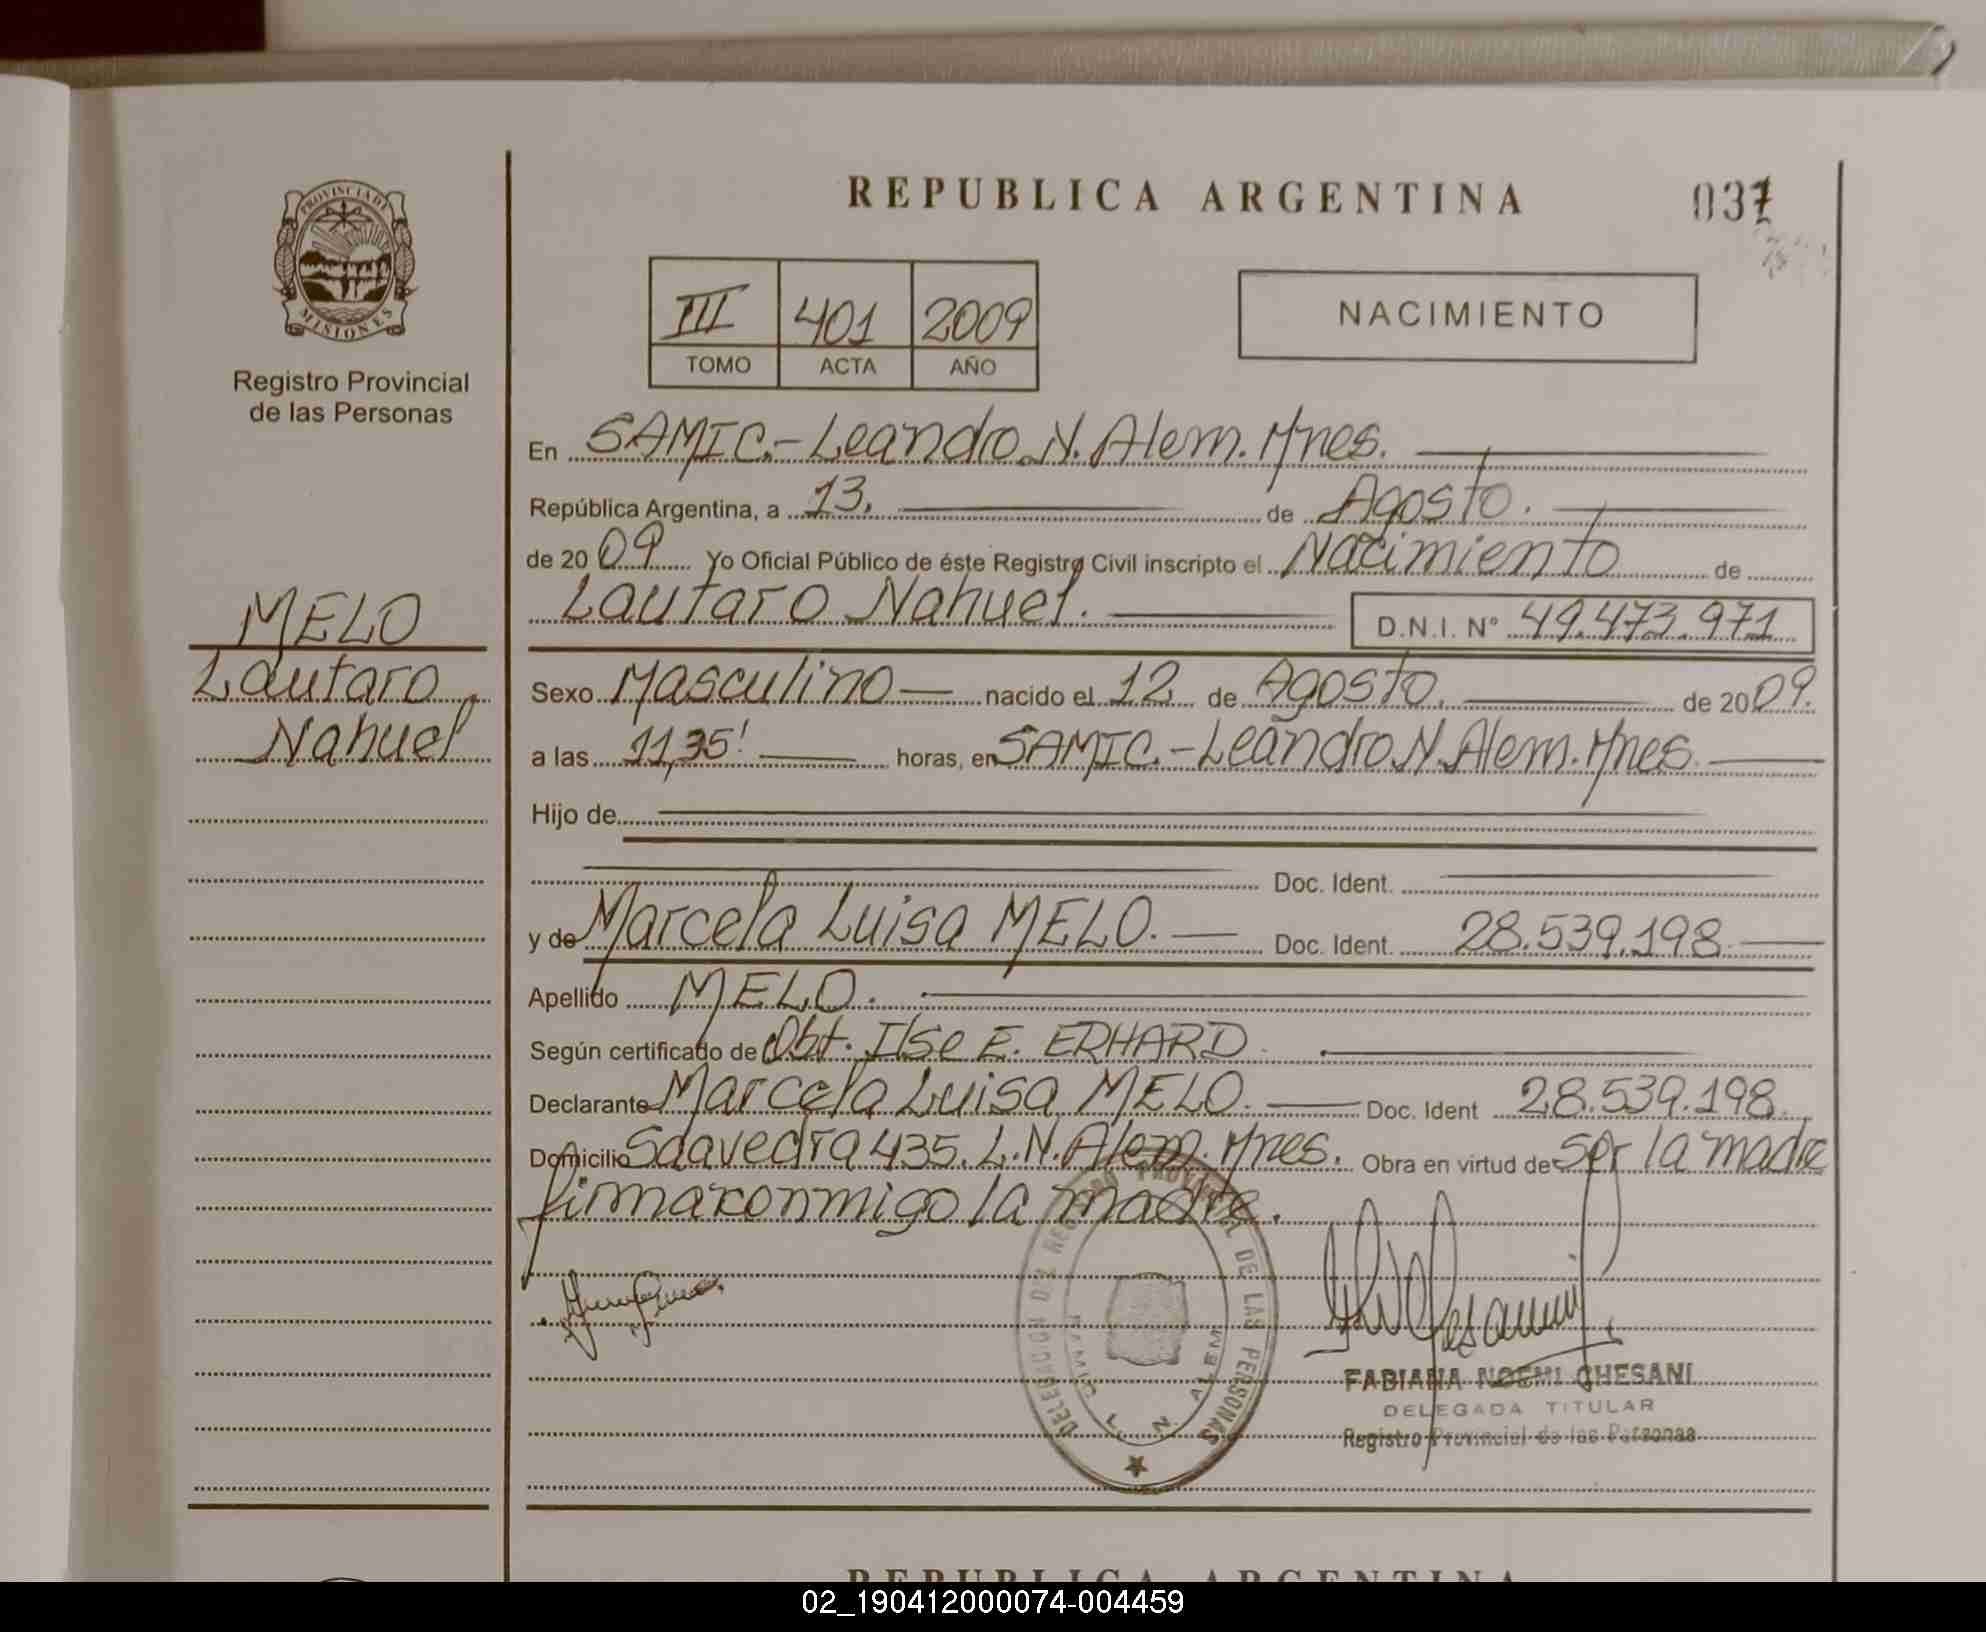 REPUBLICA ARGENTINA
037
PROVINCIA DE
MISIONES
Registro Provincial
de las Personas
III 401 2009
TOMO ACTA AÑO
NACIMIENTO
MELO
Lautaro
Nahuel
En SAMIC.- Leandro N. Alem. Mnes.
República Argentina, a 13. de Agosto.
de 2009 Yo Oficial Público de éste Registro Civil inscripto el Nacimiento de
Lautaro Nahuel. D.N.I. N° 49.473.971
Sexo Masculino nacido el 12 de Agosto. de 2009.
a las 11,35' horas, en SAMIC.- Leandro N. Alem. Mnes.
Hijo de
Doc. Ident.
y de Marcela Luisa MELO. Doc. Ident. 28.539.198
Apellido MELO.
Según certificado de Obt. Ilse E. ERHARD
Declarante Marcela Luisa MELO. Doc. Ident 28.539.198
Domicilio Saavedra 435. L.N. Alem. Mnes. Obra en virtud de ser la madre
firma conmigo la madre.
DELEGACION DEL REGISTRO PROVINCIAL DE LAS PERSONAS
SAMIC L. N. ALEM
FABIANA NOEMI GHESANI
DELEGADA TITULAR
Registro Provincial de las Personas
REPUBLICA ARGENTINA
02_190412000074-004459